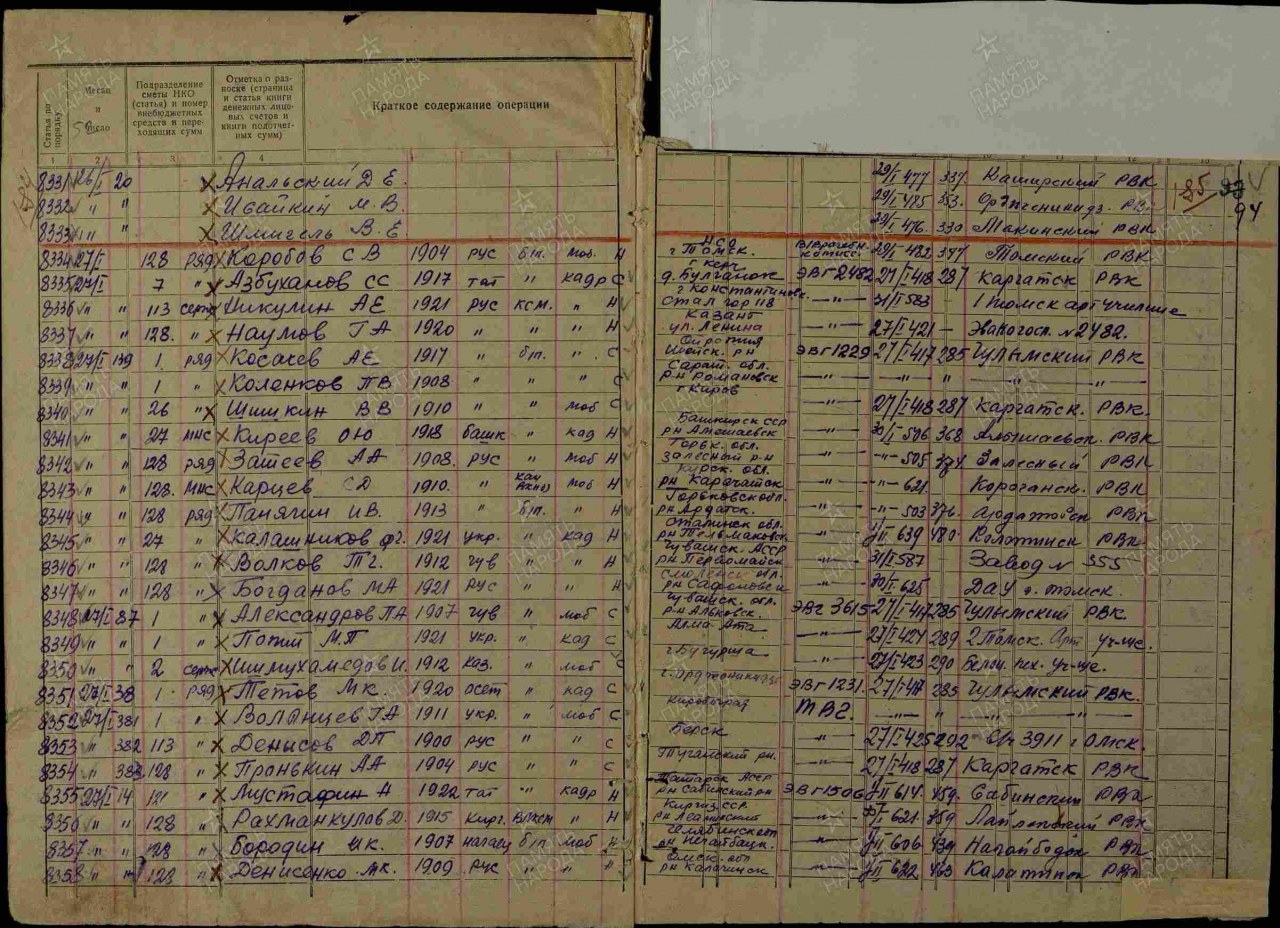 Статья по порядку
Месяц и число
Подразделение сметы НКО (статья) и номер внебюджетных средств и переходящих сумм
Отметка о разноске (страница и статья книги денежных лицевых счетов и книги подотчетных сумм)
Краткое содержание операции
1 2 3 4
8331 26/I 20 Анальский Д Е. 29/I 477 337 Каширский РВК 185
8332 " " Ивайкин М. В. 29/I 475 353. РВК 94
8333 " " Шмигель В. Е 29/I 476. 330 Макинский РВК
8334 27/I 128 ряд Коробов С В 1904 рус б/п. моб. Н г Томск. 29/I 482 347 Томский РВК
8335 27/I 7 " Азбуханов СС 1917 тат " кадр С д. Булганак ЭВГ 2482 27/I 418 287 Каргатск РВК
8336 " " 113 серж Никулин АЕ 1921 рус ксм. " Н г Константиновк. Стал гор 118 —"— 31/I 583 1 Томск арт училище
8337 " " 128. " Наумов ГА 1920 " " " Н Казань ул. Ленина —"— 27/I 421 — Эвакогосп. № 2482.
8338 27/I 139 1. ряд Косачев АЕ 1917 " б/п. " С ЭВГ 1229 27/I 417 285 Чулымский РВК
8339 " " 1 " Коленков ПВ 1908 " " " С Сарат. обл. рн Романовск —"— —"— " —"— " "
8340 " " 26 " Шишкин ВВ 1910 " " моб С г Киров 27/I 418 287 Каргатск. РВК.
8341 " " 27 мнс Киреев ОЮ 1918 башк " кад Н Башкирск ССР рн Альшаевск 30/I 506 368 Альшаевск. РВК
8342 " " 128 ряд Затеев АА 1908. рус " моб Н Горьк. обл. Залесный р-н —"— 505 374 Залесный РВК
8343 " " 128. мнс Карцев СД 1910. " моб Н —"— —"— 621. РВК
8344 " " 128 ряд Панягин ИВ. 1913 " б/п. " Н Горьковск обл. рн Ардатск. —"— —"— 503 376. РВК
8345 " " 27 " Калашников фг. 1921 укр. " кад Н Сталинск обл. рн Тельмановск —"— 639 480 РВК
8346 " " 128 " Волков Тг. 1912 чув " " Н Чувашск. АССР рн Первомайск —"— 31/I 587 Завод № 355
8347 " " 128 " Богданов МА 1921 рус " " Н Смоленск обл. рн Сафоновск —"— 30/I 625 ДАУ г. Томск.
8348 27/I 87 1 " Александров ПА 1907 чув " моб С Чувашск. обл. рн Альковск. ЭВГ 3615 27/I 417 285 Чулымский РВК.
8349 " " 1 " Попий МГ 1921 укр. " кад С Алма Ата —"— 27/I 424 289 2 Томск. Арт уч-ще.
8350 " " 2 серж Шимухамедов И. 1912 каз. " моб С —"— 27/I 423 290 Белоц. пех. уч-ще.
8351 27/I 38 1. ряд Тетов МК. 1920 осет " кад С г. Орджоникидзе ЭВГ 1231. 27/I 417 285 Чулымский РВК.
8352 27/I 381 1 " Воланцев ГА 1911 укр. " моб С Кировоград ТВГ. —"— " —"— " "
8353 " 382 113 " Денисов ДП 1900 рус " " С Берск —"— 27/I 425 292 в/ч 3911 г Омск.
8354 " 383 128 " Пронькин АА 1904 рус " " С Туганский рн. 27/I 418 287 Каргатск РВК
8355 27/I 14 121 " Мустафин Н 1922 тат " кадр Н Татарск АССР рн Сабинский рн ЭВГ 1506 614 459. Сабинский РВК
8356 " " 128 " Рахманкулов Д. 1915 кирг. влксм " Н Киргиз. ССР —"— 621. 459 РВК
8357 " " 128 " Бородин ик. 1907 б/п моб Н Челябинск обл рн Нагайбацк. —"— 606 439 РВК
8358 " " 128 " Денисенко мк. 1909 рус " " " Омск. обл рн Калачинск —"— 622 463 РВК
ПАМЯТЬ НАРОДА